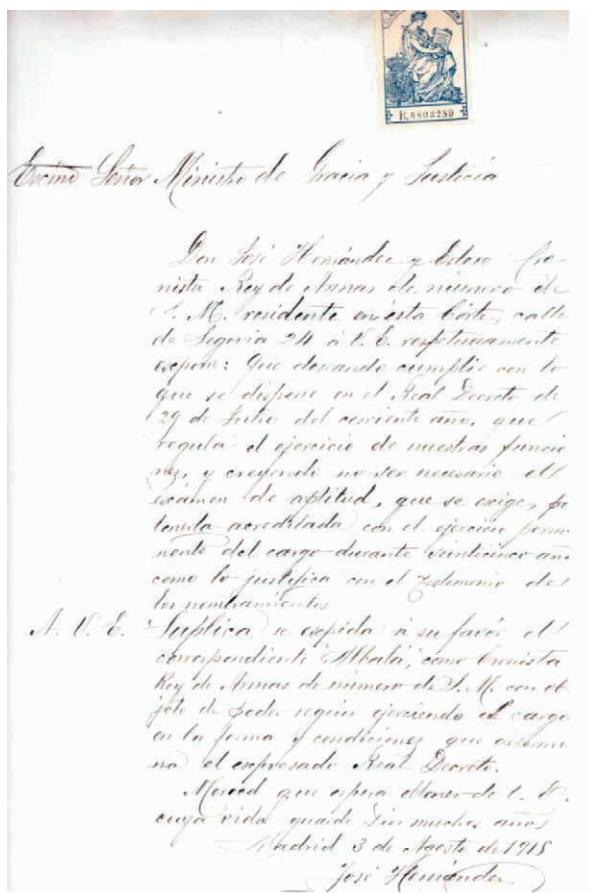 R.8803259
Excmo Señor Ministro de Gracia y Justicia
Don José Hernández y Estevo Cro-
nista Rey de Armas de número de
S. M. residente en ésta Córte, calle
de Segovia 24 á V. E. respetuosamente
expone: Que deseando cumplir con lo
que se dispone en el Real Decreto de
29 de Julio del corriente año, que
regula el ejercicio de nuestras funcio
nes, y creyendo no ser necesario el
exámen de aptitud, que se exige, po
tenerla acreditada con el ejercicio perma
nente del cargo durante veinticinco año
como lo justifica con el testimonio de
los nombramientos
A. V. E. Suplica se expida á su favor el
correspondiente "Albalá", como Cronista
Rey de Armas de número de S. M. con ob
jeto de poder seguir ejerciendo el cargo
en la forma y condiciones que determi
na el expresado Real Decreto.
Merced que espera obtener de V. E.
cuya vida guarde Dios muchos años
Madrid 3 de Agosto de 1915
José Hernández.